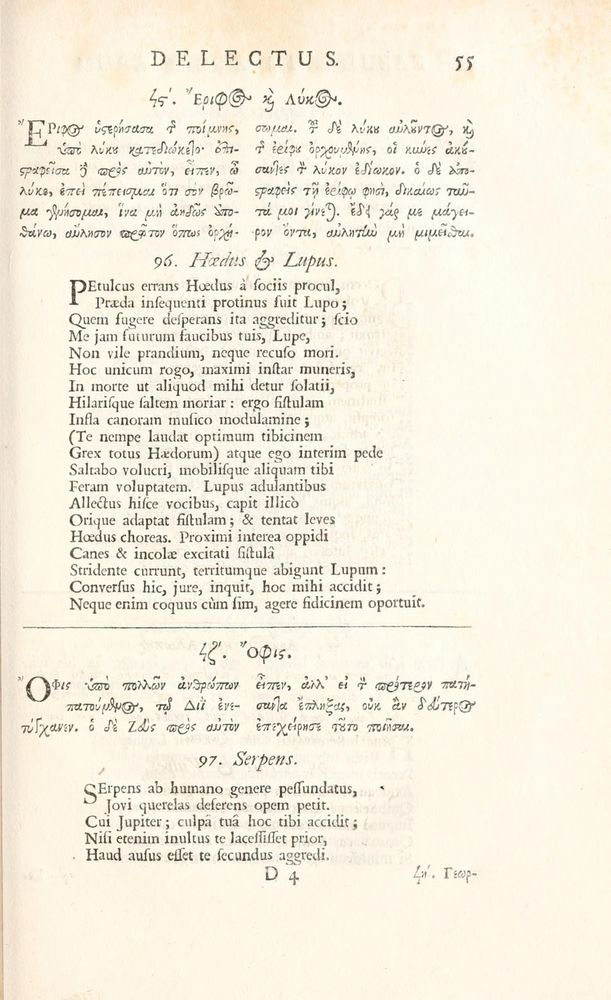 DELECTUS. 55
ϟϛʹ. Ἔριφος καὶ Λύκος.
ἜΡιφος ὑστερήσασα τῆς ποίμνης,
ὑπὸ λύκου κατεδιώκετο· ἐπι-
στραφεῖσα δὲ πρὸς αὐτὸν, εἶπεν, ὦ
λύκε, ἐπεὶ πέπεισμαι ὅτι σὸν βρῶ-
μα γενήσομαι, ἵνα μὴ ἀηδῶς ἀπο-
θάνω, αὔλησον πρῶτον ὅπως ὀρχή-
σωμαι. τοῦ δὲ λύκου αὐλοῦντος, καὶ
τῆς ἐρίφου ὀρχουμένης, οἱ κύνες ἀκού-
σαντες τὸν λύκον ἐδίωκον. ὁ δὲ ἐπι-
στραφεὶς τῇ ἐρίφῳ φησὶ, δικαίως ταῦ-
τά μοι γίνεται. ἔδει γάρ με μάγει-
ρον ὄντα, αὐλητὴν μὴ μιμεῖσθαι.
96. Hœdus & Lupus.
PEtulcus errans Hœdus à ſociis procul,
Præda inſequenti protinus fuit Lupo;
Quem fugere deſperans ita aggreditur; ſcio
Me jam futurum faucibus tuis, Lupe,
Non vile prandium, neque recuſo mori.
Hoc unicum rogo, maximi inſtar muneris,
In morte ut aliquod mihi detur ſolatii,
Hilariſque ſaltem moriar: ergo fiſtulam
Infla canoram muſico modulamine;
(Te nempe laudat optimum tibicinem
Grex totus Hædorum) atque ego interim pede
Saltabo volucri, mobiliſque aliquam tibi
Feram voluptatem. Lupus adulantibus
Allectus hiſce vocibus, capit illicò
Orique adaptat fiſtulam; & tentat leves
Hœdus choreas. Proximi interea oppidi
Canes & incolæ excitati fiſtulâ
Stridente currunt, territumque abigunt Lupum:
Converſus hic, jure, inquit, hoc mihi accidit;
Neque enim coquus cùm ſim, agere fidicinem oportuit.
ϟζʹ. Ὄφις.
ὌΦις ὑπὸ πολλῶν ἀνθρώπων
πατούμενος, τῷ Διῒ ἐνε-
τύγχανεν. ὁ δὲ Ζεὺς πρὸς αὐτὸν
εἶπεν, ἀλλ᾽ εἰ τὸν πρότερον πατή-
σαντα ἔπληξας, οὐκ ἂν δεύτερος
ἐπεχείρησε τοῦτο ποιῆσαι.
97. Serpens.
SErpens ab humano genere peſſundatus,
Jovi querelas deferens opem petit.
Cui Jupiter; culpâ tuâ hoc tibi accidit;
Niſi etenim inultus te laceſſiſſet prior,
Haud auſus eſſet te ſecundus aggredi.
D 4 ϟηʹ. Γεωρ-